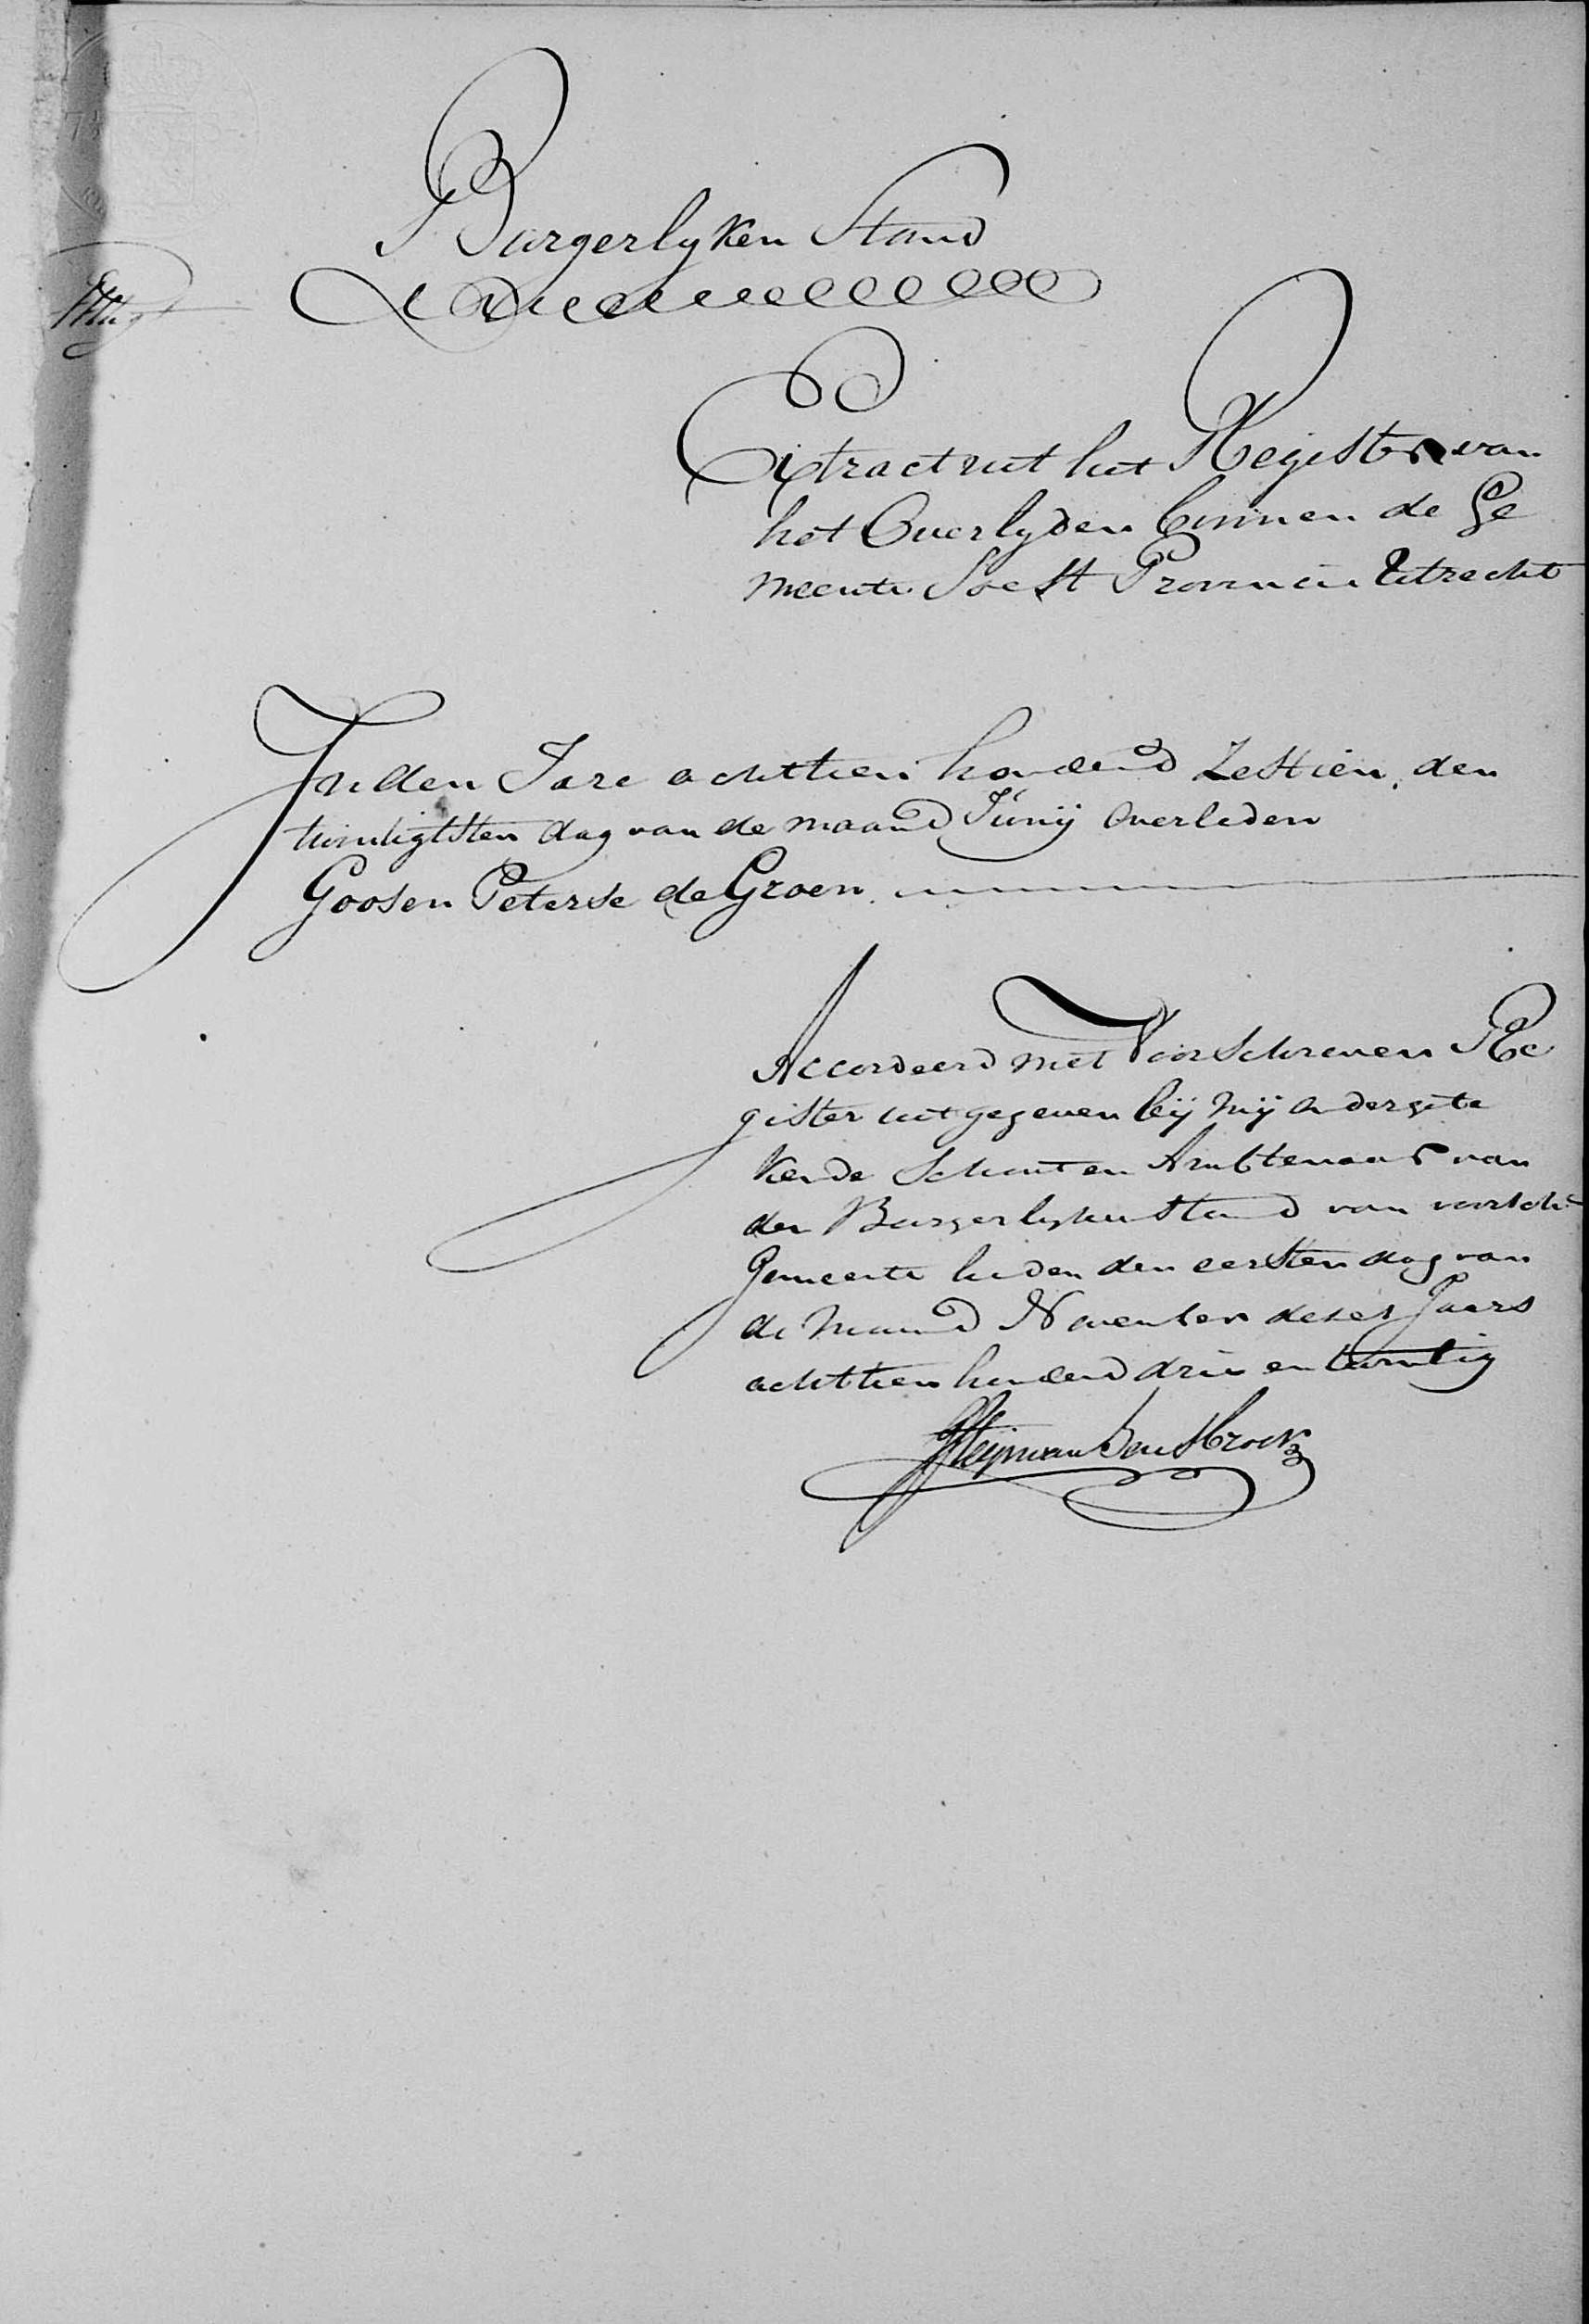 Burgerlyken Stand
Extract uit het Register van
het Overlyden binnen de Ge
meente Soest Provincie Utrecht
In den Jare achttien honderd Zestien, den
twintigsten dag van de maand Junij Overleden
Goosen Peterse de Groen.
Accordeerd met Voorschreven Re
gister uitgegeven bij mij ondergete
kende Schout en Ambtenaar van
den Burgerlyken Stand van voorschr
Gemeente heden den eersten dag van
de maand November dezes Jaars
achttien honderd drie en twintig